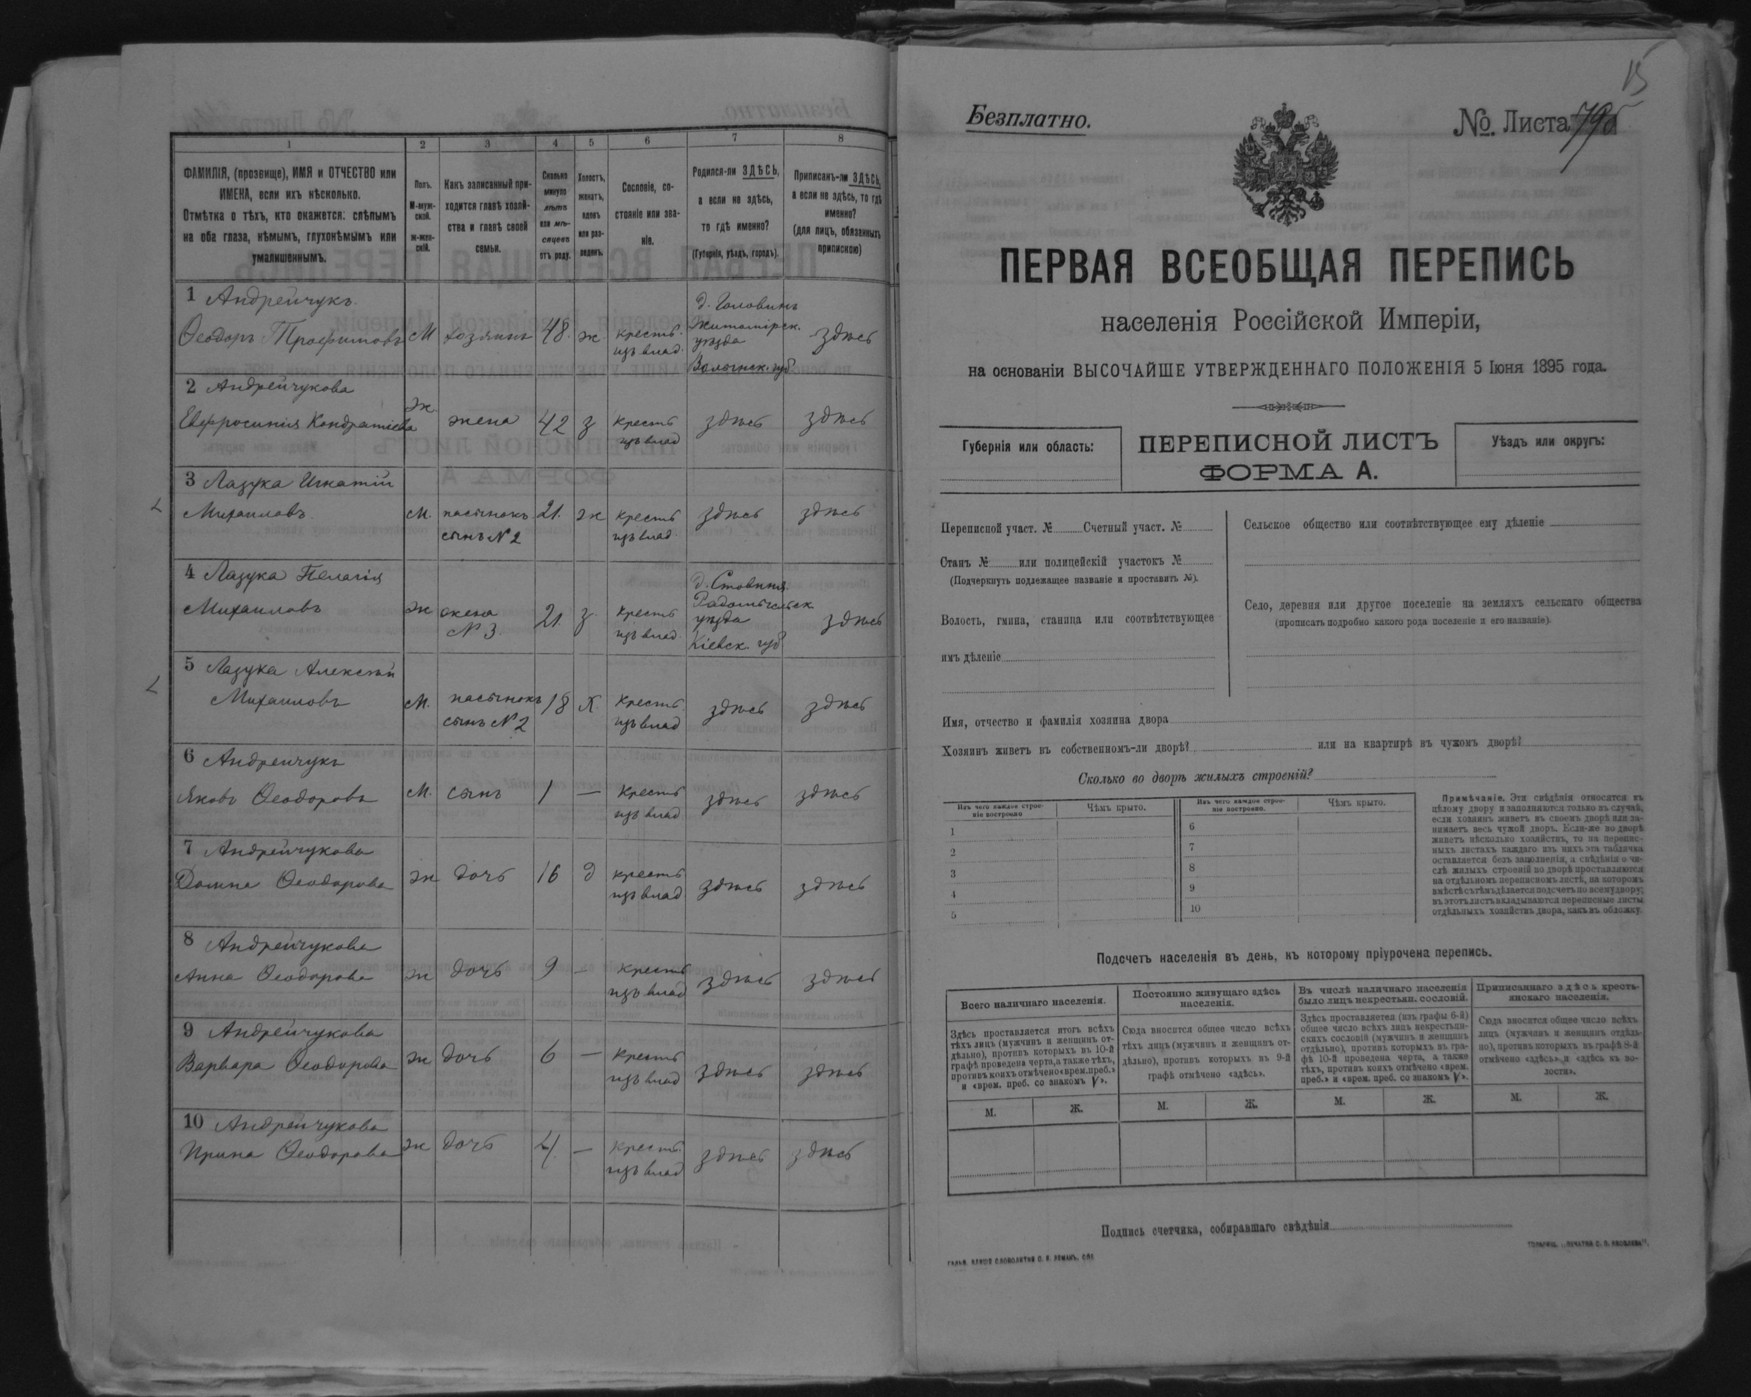 1 2 3 4 5 6 7 8
ФАМИЛІЯ, (прозвище), ИМЯ и ОТЧЕСТВО или
ИМЕНА, если ихъ нѣсколько.
Отмѣтка о тѣхъ, кто окажется: слѣпымъ
на оба глаза, нѣмымъ, глухонѣмымъ или
умалишеннымъ.
Полъ.
М-муж-
ской.
ж-жен-
скій.
Какъ записанный при-
ходится главѣ хозяй-
ства и главѣ своей
семьи.
Сколько
минуло
лѣтъ
или мѣ-
сяцевъ
отъ роду.
Холостъ,
женатъ,
вдовъ
или раз-
веденъ.
Сословіе, со-
стояніе или зва-
ніе.
Родился-ли ЗДѢСЬ,
а если не здѣсь,
то гдѣ именно?
(Губернія, уѣздъ, городъ).
Приписанъ-ли ЗДѢСЬ,
а если не здѣсь, то гдѣ
именно?
(для лицъ, обязанныхъ
припискою)
1 Андрейчукъ
Ѳеодоръ Трофимовъ М хозяинъ 48 ж крестъ изъ влад. д. Головинъ Житомірск. уѣзда Волынск. губ. здѣсь
2 Андрейчукова
Евфросинія Кондратіева ж жена 42 з крестъ изъ влад здѣсь здѣсь
3 Лазука Игнатій
Михаиловъ М. пасынокъ сынъ №2 21 ж крестъ изъ влад здѣсь здѣсь
4 Лазука Пелагія
Михаиловъ ж жена №3. 21 з крестъ изъ влад Радомысльск уѣзда Кіевск. губ здѣсь
5 Лазука Алексѣй
Михаиловъ М. пасынокъ сынъ №2 18 х крестъ изъ влад здѣсь здѣсь
6 Андрейчукъ
Яковъ Ѳеодоровъ М. сынъ 1 — крестъ изъ влад здѣсь здѣсь
7 Андрейчукова
Домна Ѳеодорова ж дочь 16 д крестъ изъ влад здѣсь здѣсь
8 Андрейчукова
Анна Ѳеодорова ж дочь 9 — крестъ изъ влад здѣсь здѣсь
9 Андрейчукова
Варвара Ѳеодорова ж дочь 6 — крестъ изъ влад здѣсь здѣсь
10 Андрейчукова
Ирина Ѳеодорова ж дочь 4 — крестъ изъ влад здѣсь здѣсь
15
Безплатно.
№. Листа
ПЕРВАЯ ВСЕОБЩАЯ ПЕРЕПИСЬ
населенія Россійской Имперіи,
на основаніи ВЫСОЧАЙШЕ УТВЕРЖДЕННАГО ПОЛОЖЕНІЯ 5 Іюня 1895 года.
Губернія или область:
ПЕРЕПИСНОЙ ЛИСТЪ
ФОРМА А.
Уѣздъ или округъ:
Переписной участ. № Счетный участ. №
Станъ № или полицейскій участокъ №
(Подчеркнуть подлежащее названіе и проставить №).
Волость, гмина, станица или соотвѣтствующее
имъ дѣленіе
Сельское общество или соотвѣтствующее ему дѣленіе
Село, деревня или другое поселеніе на земляхъ сельскаго общества
(прописать подробно какого рода поселеніе и его названіе).
Имя, отчество и фамилія хозяина двора
Хозяинъ живетъ въ собственномъ-ли дворѣ? или на квартирѣ въ чужомъ дворѣ?
Сколько во дворѣ жилыхъ строеній?
Изъ чего каждое строе-
ніе построено
Чѣмъ крыто.
Изъ чего каждое строе-
ніе построено.
Чѣмъ крыто.
1 6
2 7
3 8
4 9
5 10
Примѣчаніе. Эти свѣдѣнія относятся къ
цѣлому двору и заполняются только въ случаѣ,
если хозяинъ живетъ въ своемъ дворѣ или за-
нимаетъ весь чужой дворъ. Если-же во дворѣ
живетъ нѣсколько хозяйствъ, то въ перепис-
ныхъ листахъ каждаго изъ нихъ эта табличка
оставляется безъ заполненія, а свѣдѣнія о чи-
слѣ жилыхъ строеній во дворѣ проставляются
на отдѣльномъ переписномъ листѣ, на которомъ
вмѣстѣ съ тѣмъ дѣлается подсчетъ по всему двору;
въ этотъ листъ вкладываются переписные листы
отдѣльныхъ хозяйствъ двора, какъ въ обложку.
Подсчетъ населенія въ день, къ которому пріурочена перепись.
Всего наличнаго населенія.
Здѣсь проставляется итогъ всѣхъ
тѣхъ лицъ (мужчинъ и женщинъ от-
дѣльно), противъ которыхъ въ 10-й
графѣ проведена черта, а также тѣхъ,
противъ коихъ отмѣчено «врем. преб.»
и «врем. преб. со знакомъ V».
Постоянно живущаго здѣсь
населенія.
Сюда вносится общее число всѣхъ
тѣхъ лицъ (мужчинъ и женщинъ от-
дѣльно), противъ которыхъ въ 9-й
графѣ отмѣчено «здѣсь».
Въ числѣ наличнаго населенія
было лицъ некрестьян. сословій.
Здѣсь проставляется (изъ графы 6-й)
общее число всѣхъ лицъ некрестьян-
скихъ сословій (мужчинъ и женщинъ
отдѣльно), противъ которыхъ въ гра-
фѣ 10-й проведена черта, а также
тѣхъ, противъ коихъ отмѣчено «врем.
преб.» и «врем. преб. со знакомъ V».
Приписаннаго здѣсь кресть-
янскаго населенія.
Сюда вносится общее число всѣхъ
лицъ (мужчинъ и женщинъ отдѣль-
но), противъ которыхъ въ графѣ 8-й
отмѣчено «здѣсь» и «здѣсь въ во-
лости».
М. Ж. М. Ж. М. Ж. М. Ж.
Подпись счетчика, собиравшаго свѣдѣнія